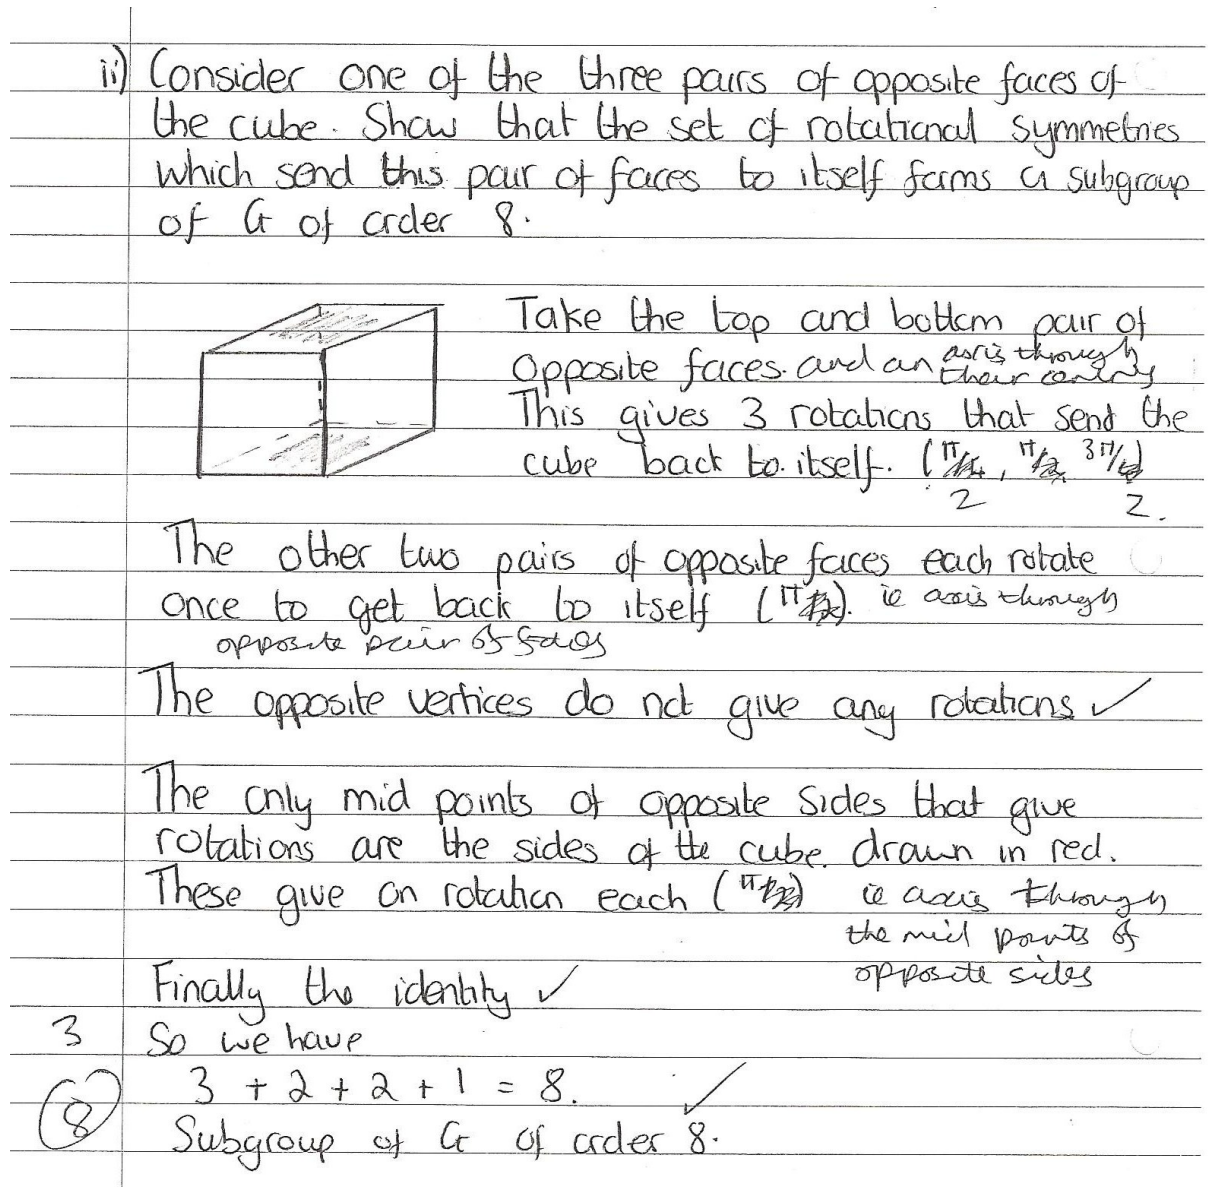 ii) Consider one of the three pairs of opposite faces of
the cube. Show that the set of rotational symmetries
which send this pair of faces to itself forms a subgroup
of G of order 8.
Take the top and bottom pair of
opposite faces and an axis through their centres
This gives 3 rotations that send the
cube back to itself. (π/2, π, 3π/2)
The other two pairs of opposite faces each rotate
once to get back to itself (π). ie axis through
opposite pair of faces
The opposite vertices do not give any rotations ✓
The only mid points of opposite sides that give
rotations are the sides of the cube drawn in red.
These give on rotation each (π) ie axis through
the mid points of
opposite sides
Finally the identity ✓
3 So we have
3 + 2 + 2 + 1 = 8. ✓
8 Subgroup of G of order 8.